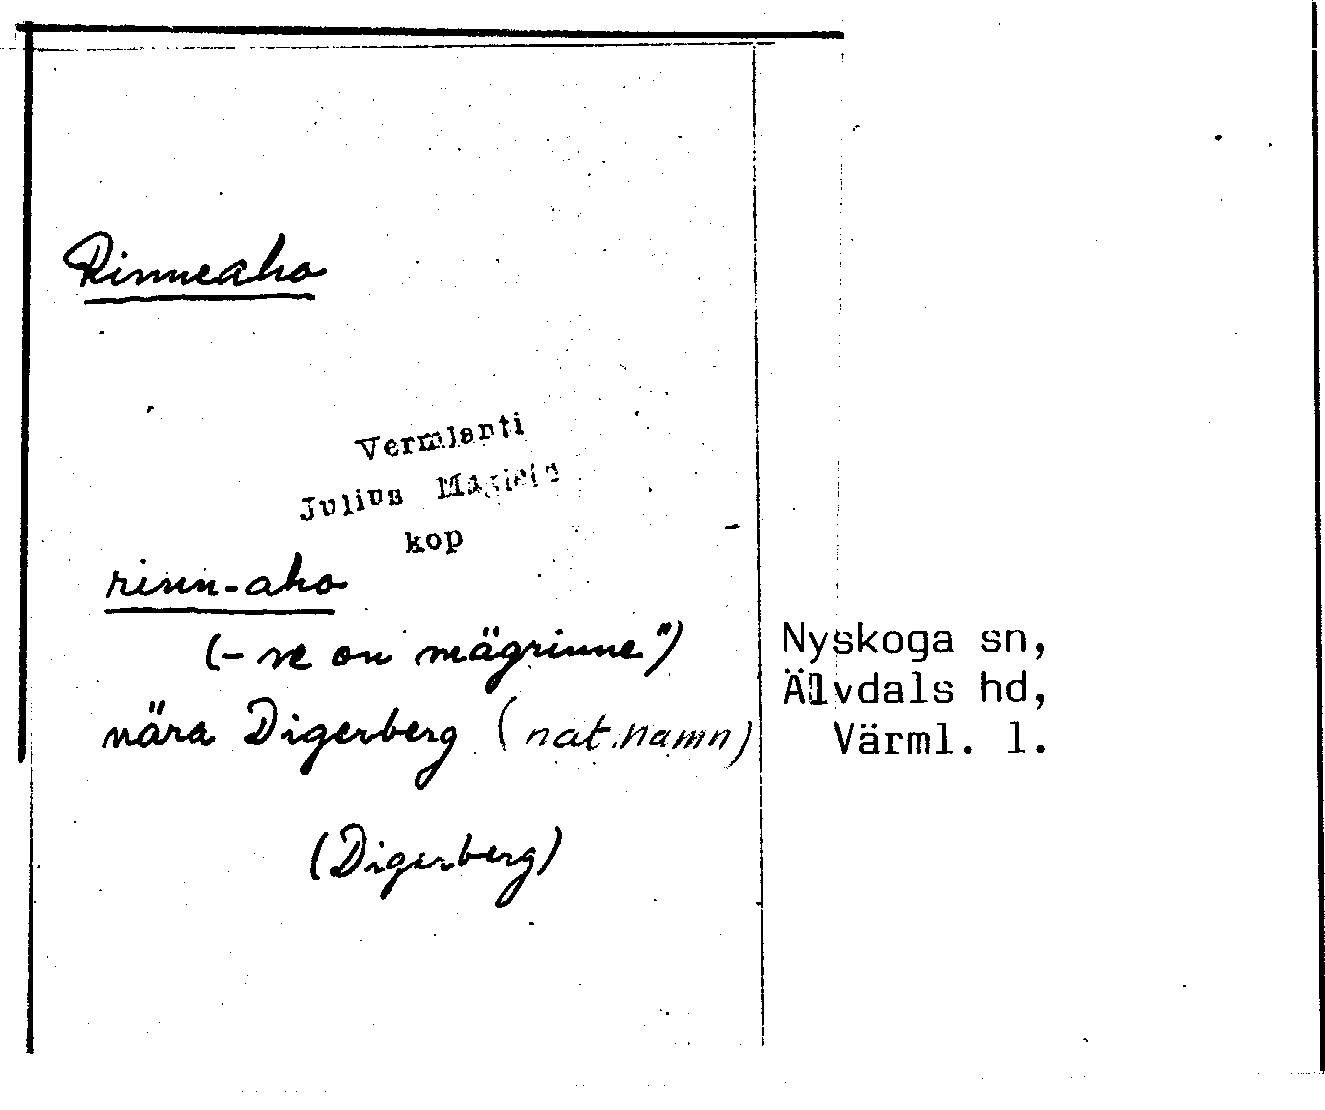 Rinneaho
Vermlanti
Julius Mägiste
kop
rinn-aho
(- se on mägrinne")
nära Digerberg (nat.namn)
(Digerberg)
Nyskoga sn,
Älvdals hd,
Värml. l.